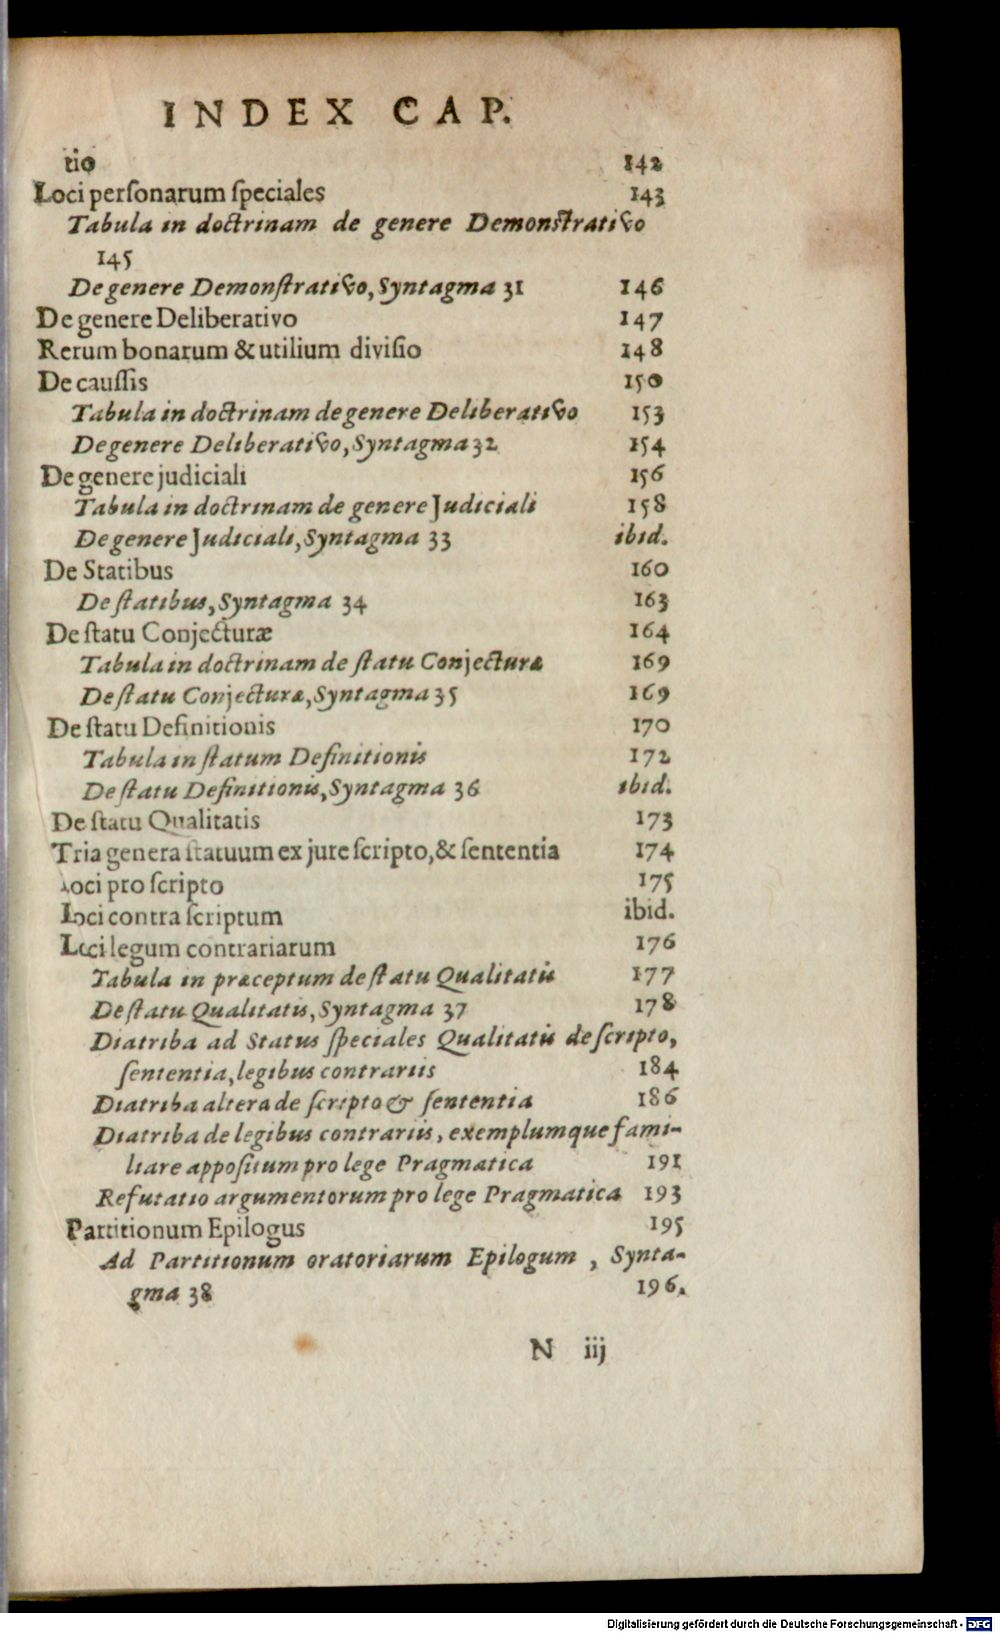 INDEX CAP.
tio 142
Loci personarum speciales 143
Tabula in doctrinam de genere Demonstrativo
145
De genere Demonstrativo, Syntagma 31 146
De genere Deliberativo 147
Rerum bonarum & utilium divisio 148
De caussis 150
Tabula in doctrinam de genere Deliberativo 153
De genere Deliberativo, Syntagma 32 154
De genere judiciali 156
Tabula in doctrinam de genere Judiciali 158
De genere Judiciali, Syntagma 33 ibid.
De Statibus 160
De statibus, Syntagma 34 163
De statu Conjecturæ 164
Tabula in doctrinam de statu Conjecturæ 169
De statu Conjecturæ, Syntagma 35 169
De statu Definitionis 170
Tabula in statum Definitionis 172
De statu Definitionis, Syntagma 36 ibid.
De statu Qualitatis 173
Tria genera statuum ex jure scripto, & sententia 174
Loci pro scripto 175
Loci contra scriptum ibid.
Loci legum contrariarum 176
Tabula in præceptum de statu Qualitatis 177
De statu Qualitatis, Syntagma 37 178
Diatriba ad Status speciales Qualitatis de scripto,
sententia, legibus contrariis 184
Diatriba altera de scripto & sententia 186
Diatriba de legibus contrariis, exemplumque fami-
liare appositum pro lege Pragmatica 191
Refutatio argumentorum pro lege Pragmatica 193
Partitionum Epilogus 195
Ad Partitionum oratoriarum Epilogum, Synta-
gma 38 196.
N iij
Digitalisierung gefördert durch die Deutsche Forschungsgemeinschaft - DFG